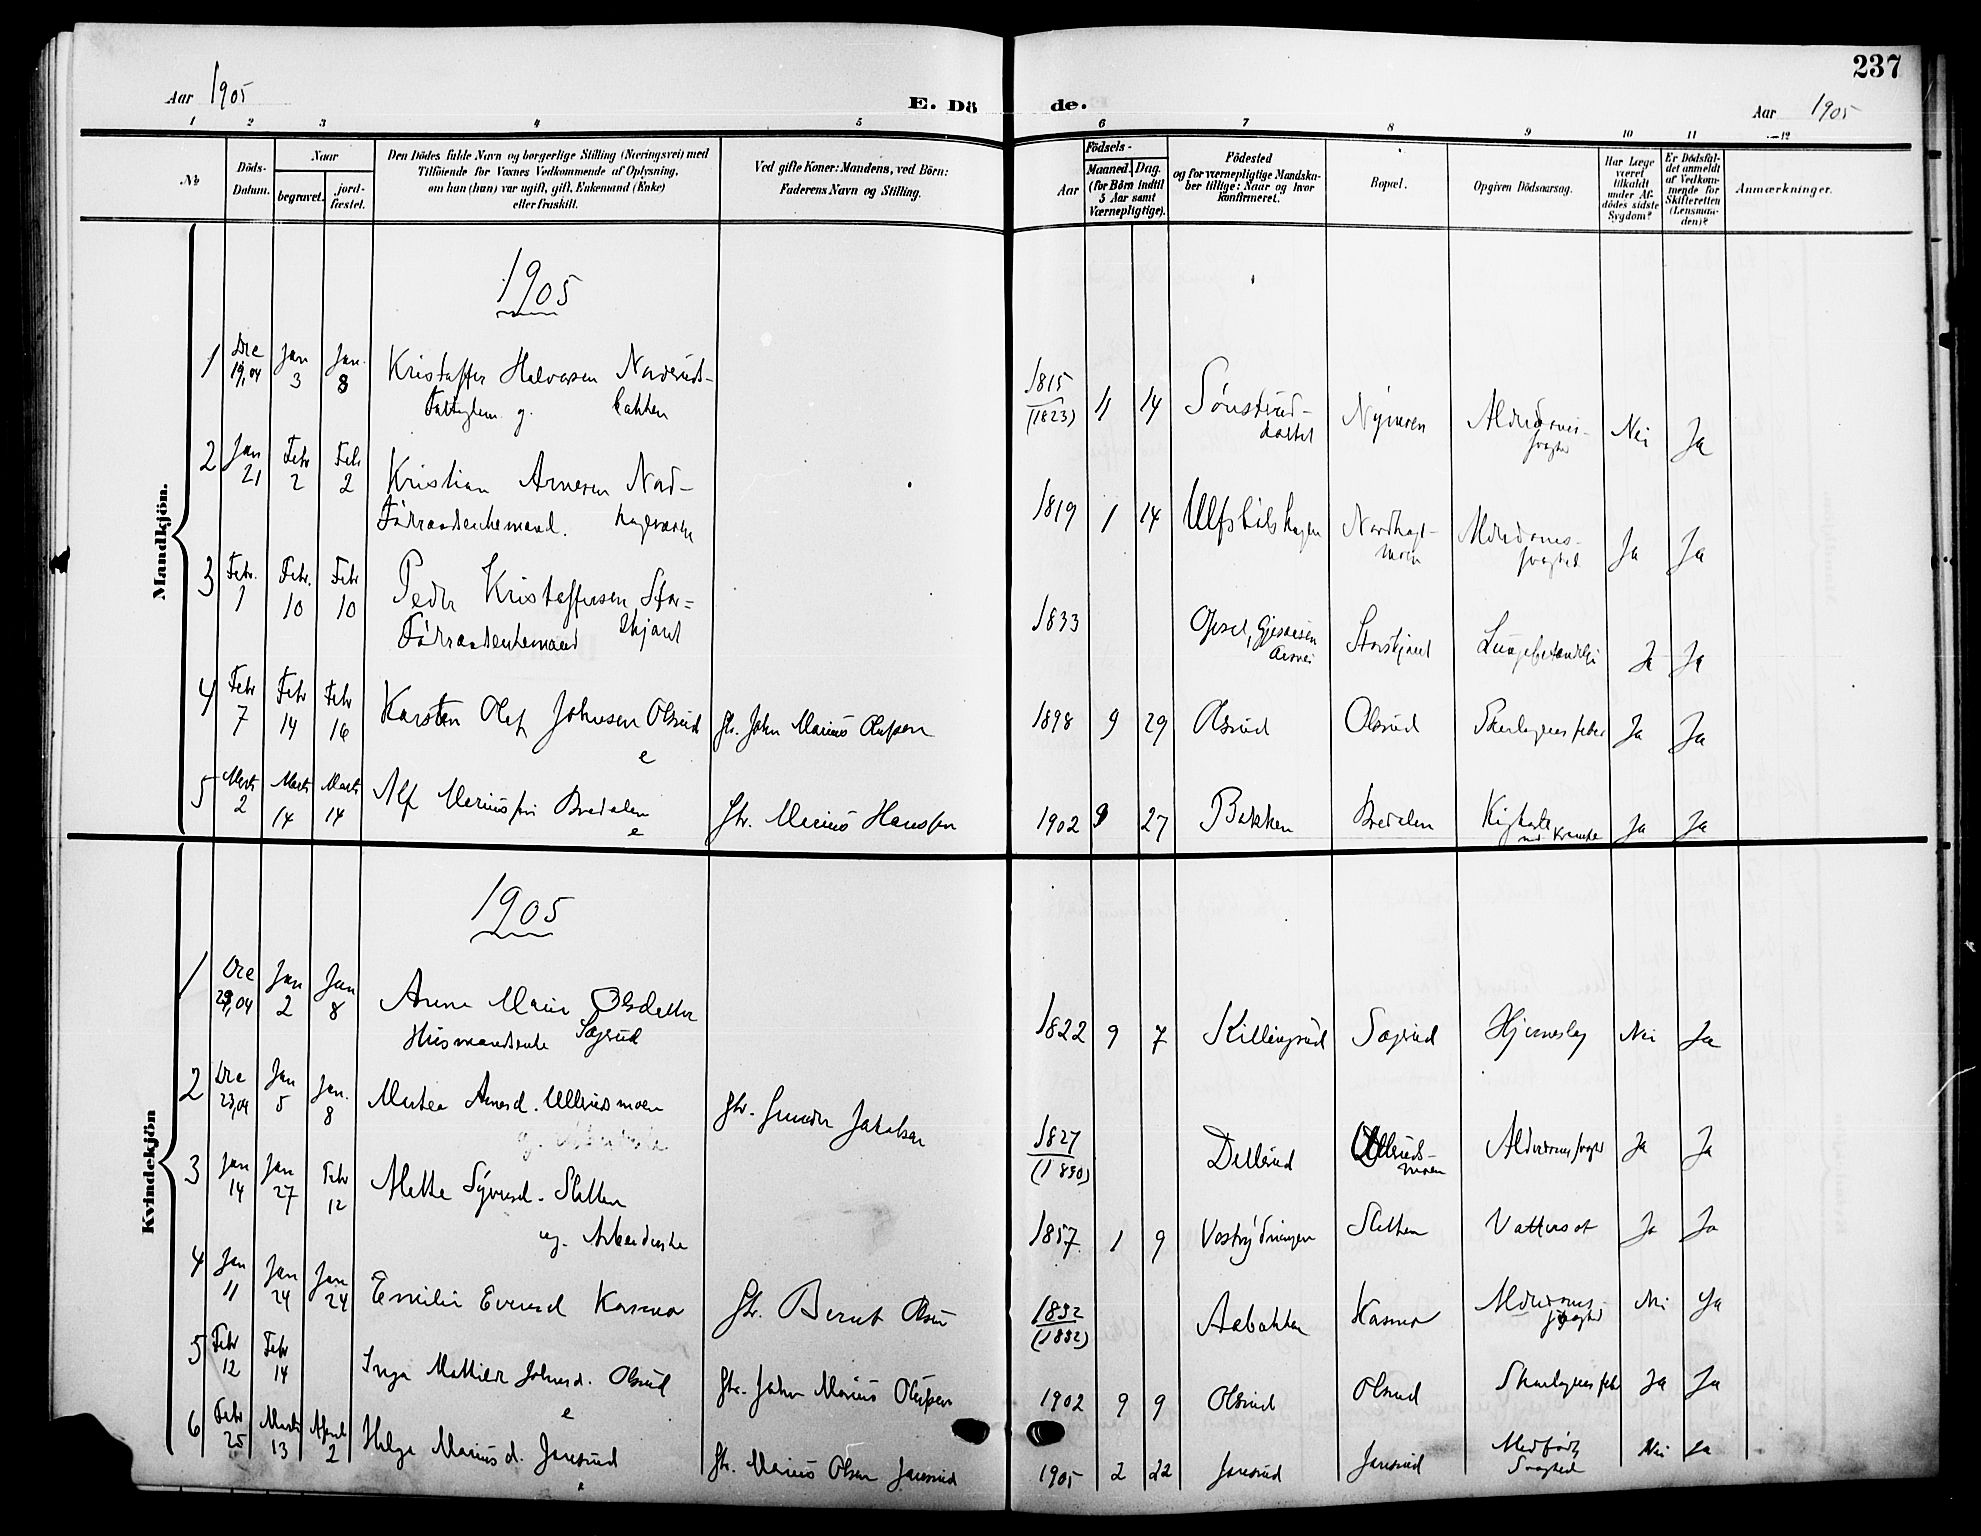 237
Aar 1905
E. Dö de.
Aar 1905
1 2 3 4 5 6 7 8 9 10 11 12
No
Döds-Datum.
Naar
begravet.
jord-fæstet.
Den Dödes fulde Navn og borgerlige Stilling (Næringsvei) med
Tilföiende for Voxnes Vedkommende af Oplysning,
om han (hun) var ugift, gift, Enkemand (Enke)
eller fraskilt.
Ved gifte Koner: Mandens, ved Börn:
Faderens Navn og Stilling.
Födsels-
Aar
Maaned. Dag.
(for Börn indtil
5 Aar samt
Værnepligtige).
Födested
og for værnepligtige Mandska-
ber tillige: Naar og hvor
konfirmeret.
Bopæl.
Opgiven Dödsaarsag.
Har Læge
været
tilkaldt
under Af-
dödes sidste
Sygdom?
Er Dödsfal-
det anmeldt
af Vedkom-
mende for
Skifteretten
(Lensman-
den)?
Anmærkninger.
Mandkjön.
1905
1 Dec 19,04 Jan 3 Jan. 8 Kristoffer Halvorsen Norderuds-
bakken g.
1815 (1823) 11 14 Sönsterud- Nymoen Alderdoms- Nei Ja
2 Jan 21 Febr 2 Feb 2 Kristian Arnesen Nord-
Föderaadsenkemand.
1819 1 14 Ulfsbölshagen Nordhags- Alderdoms- Ja Ja
moen svaghed
3 Febr. 1 Febr. 10 Febr 10 Peder Kristoffersen Stor=
Föderaadsenkemand skjaret
1833 Opset, Storskjaret Lungebetændelse Ja Ja
4 Febr 7 Febr 14 Febr 16 Karsten Olaf Johnsen Olsrud
e
Gbr. John Marius Olufsen 1898 9 29 Olsrud Olsrud Skarlagensfeber Ja Ja
5 Marts 2 Marts 14 Marts 14 Alf Mariussen Bredalen
e
Gbr. Marius Hanssen 1902 9 27 Bakken Bredalen Kighoste Ja Ja
Kvindekjön
1905
1 Dec 29,04 Jan 2 Jan 8 Anne Marie Olsdatter
Husmandsenke Sagrud
1822 9 7 Killingrud Sagrud Hjerneslag Nei Ja
2 Dec 23,04 Jan 5 Jan. 8 Martea Arnesd. Ullerudsmoen
Gbr. Gunder Jakobsen 1827 (1830) Dellerud Ullerudsmoen Alderdomssvaghed Ja Ja
3 Jan 14 Jan 27 Febr 12 Mette Syversd. Sletten
ug. Arbeiderske
1857 1 9 Sletten Vattersot Ja Ja
4 Jan 11 Jan 24 Jan 24 Emilie Evensd Kasmo
Gbr. Bernt Olsen 1832 (1832) Aabakken Kasmo Alderdoms- Nei Ja
svaghed
5 Febr 12 Febr 14 Inga Mathilde Johnsd. Olsrud
e
Gbr. John Marius Olufsen 1902 9 9 Olsrud Olsrud Skarlagensfeber Ja Ja
6 Febr 25 Marts 13 April 2 Helga Mariusd. Jansrud
e
Gbr. Marius Olsen Jansrud 1905 2 22 Jansrud Jansrud Medfödt Nei Ja
Svaghed